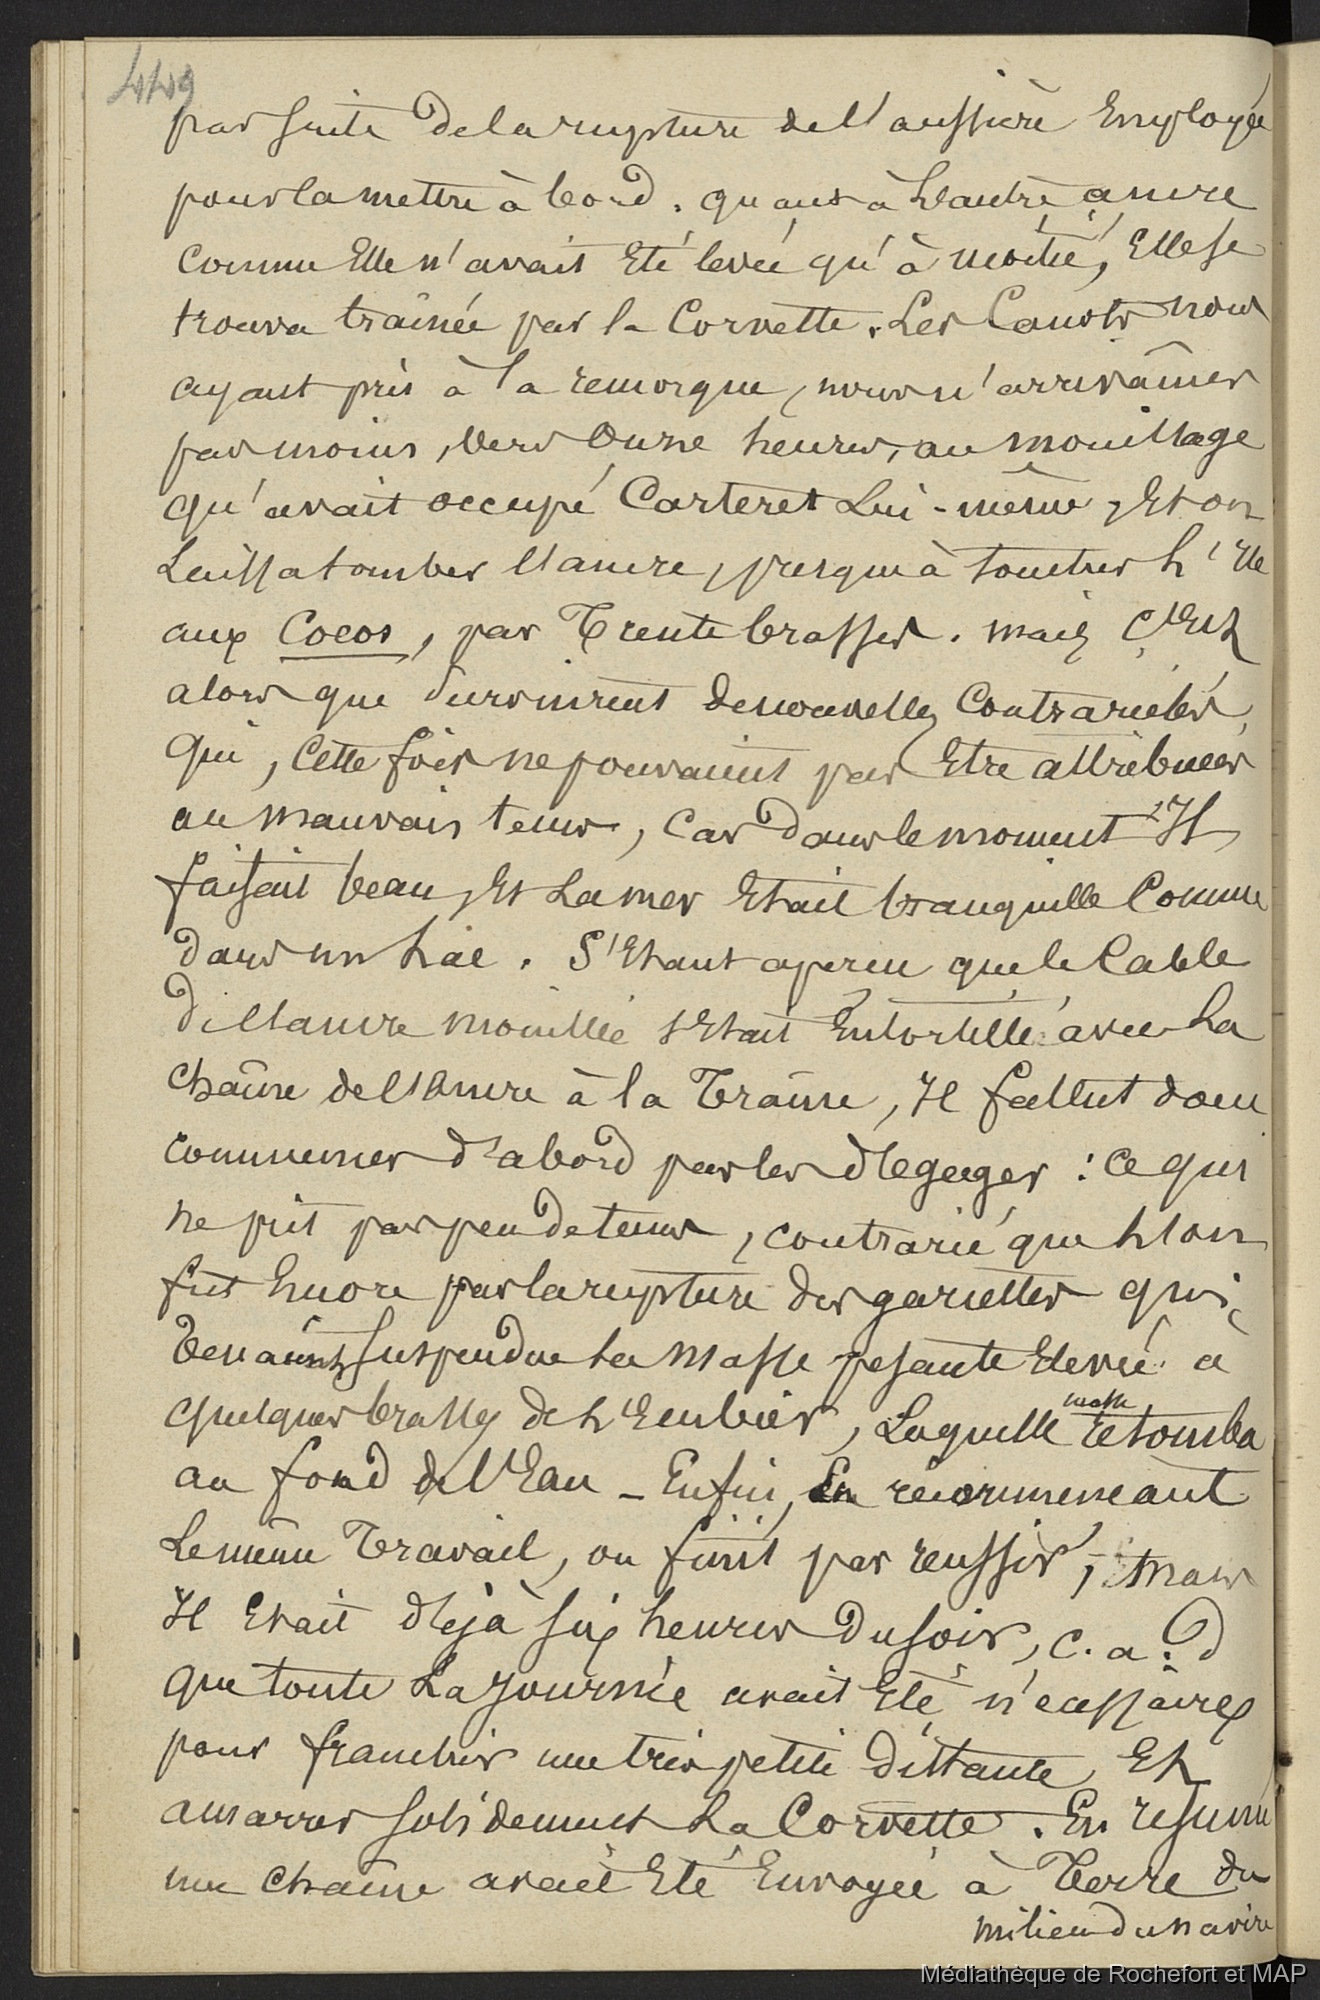 449
par suite de la rupture de l'aussière Employée
pour la mettre à bord. quant à L'autre ancre
comme Elle n'avait Eté levée qu'à moitié, Elle se
trouva traînée par la Corvette. Les Canots nous
ayant pris à la remorque, nous n'arrivâmes
pas moins, vers Onze heures, au mouillage
qu'avait occupé Carteret Lui-même, Et on
Laissa tomber l'ancre, presqu'à toucher L'Ile
aux Cocos, par Trente brasses. mais C'Est
alors que survinrent de nouvelles Contrariétés
qui, Cette fois ne pouvaient pas Etre attribuées
au mauvais tems, Car dans le moment Il
faisait beau, Et La mer Etait tranquille Comme
dans un Lac. S'Etant aperçu que le Cable
de l'ancre mouillée s'Etait Entortillé avec La
Chaîne de l'Ancre à la Traîne, Il fallut donc
commencer d'abord par les dégager : Ce qui
ne prit pas peu de tems, contrarié que L'on
fut Encore par la rupture des garcettes qui
Tenaient suspendue La Masse pesante Elevée à
quelques brasses de L'Eubier, Laquelle masse retomba
au fond de l'Eau _ Enfin, En recommençant
Le même Travail, on finit par reussir, mais
Il Etait déjà six heures du soir, c. a. d
que toute La Journée avait Eté nécessaire
pour franchir une très petite distance, Et
amarrer solidement La Corvette. En résumé
une chaîne avait Eté Envoyée à Terre du
milieu du navire
Médiathèque de Rochefort et MAP